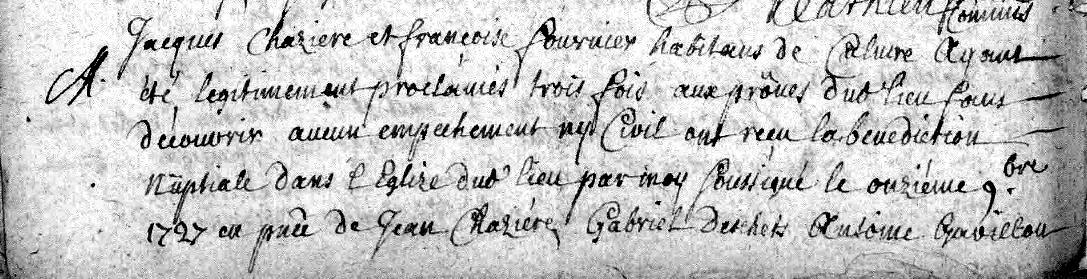 Mathieu Commis
Jacques Chaziere et françoise fournier habitans de Caluire Ayant
M. été legitimement proclamés trois fois aux prônes dud lieu sans
découvrir aucun empechement ny Civil ont reçu la benediction
Nuptiale dans l Eglize dud lieu par moy soussigné le onziéme 9.bre
1727 en pnce de Jean Chaziére, Gabriel Antoine